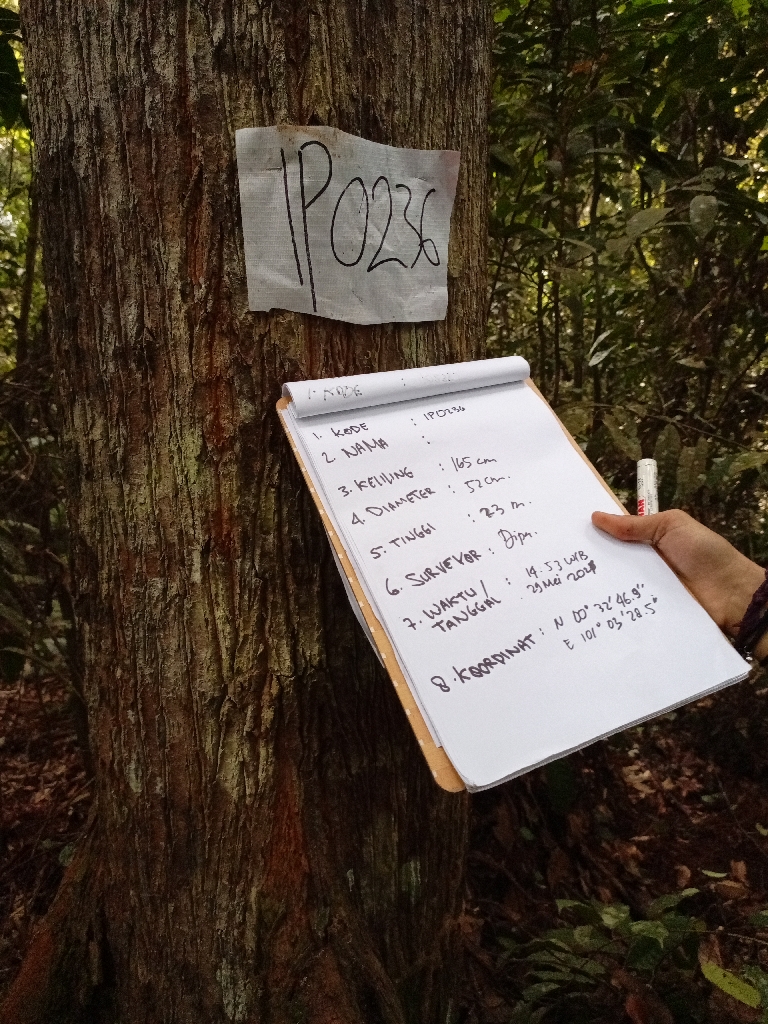 IP0236
1. KODE : IP0236
2. NAMA :
3. KELILING : 165 cm
4. DIAMETER : 52 cm.
5. TINGGI : 23 m.
6. SURVEYOR : Dipa.
7. WAKTU / : 14.53 WIB
TANGGAL . 29 Mei 2024
8. KOORDINAT : N 00° 32' 46.9"
E 101° 03' 28.5"